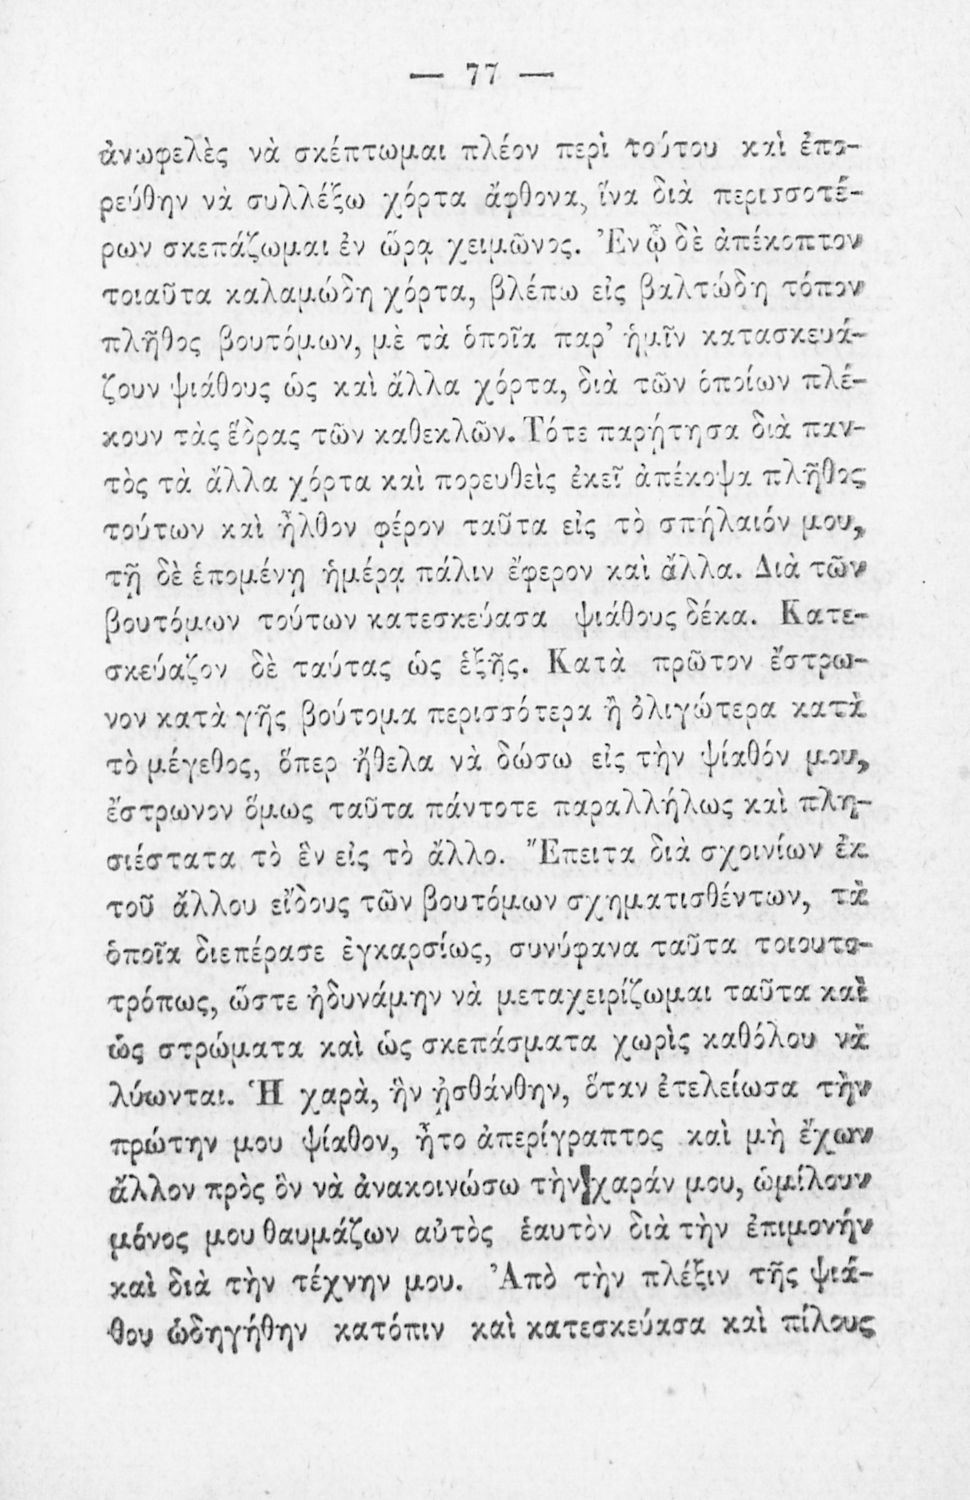 — 77 —
ἀνωφελὲς νὰ σκέπτωμαι πλέον περὶ τούτου καὶ ἐπο-
ρεύθην νὰ συλλέξω χόρτα ἄφθονα, ἵνα διὰ περισσοτέ-
ρων σκεπάζωμαι ἐν ὥρᾳ χειμῶνος. Ἐν ᾧ δὲ ἀπέκοπτον
τοιαῦτα καλαμώδη χόρτα, βλέπω εἰς βαλτώδη τόπον
πλῆθος βουτόμων, μὲ τὰ ὁποῖα παρ’ ἡμῖν κατασκευά-
ζουν ψιάθους ὡς καὶ ἄλλα χόρτα, διὰ τῶν ὁποίων πλέ-
κουν τὰς ἕδρας τῶν καθεκλῶν. Τότε παρῄτησα διὰ παν-
τὸς τὰ ἄλλα χόρτα καὶ πορευθεὶς ἐκεῖ ἀπέκοψα πλῆθος
τούτων καὶ ἦλθον φέρον ταῦτα εἰς τὸ σπήλαιόν μου,
τῇ δὲ ἑπομένῃ ἡμέρᾳ πάλιν ἔφερον καὶ ἄλλα. Διὰ τῶν
βουτόμων τούτων κατεσκεύασα ψιάθους δέκα. Κατε-
σκεύαζον δὲ ταύτας ὡς ἑξῆς. Κατὰ πρῶτον ἔστρω-
νον κατὰ γῆς βούτομα περισσότερα ἢ ὀλιγώτερα κατὰ
τὸ μέγεθος, ὅπερ ἤθελα νὰ δώσω εἰς τὴν ψίαθόν μου,
ἔστρωνον ὅμως ταῦτα πάντοτε παραλλήλως καὶ πλη-
σιέστατα τὸ ἓν εἰς τὸ ἄλλο. Ἔπειτα διὰ σχοινίων ἐκ
τοῦ ἄλλου εἴδους τῶν βουτόμων σχηματισθέντων, τὰ
ὁποῖα διεπέρασε ἐγκαρσίως, συνύφανα ταῦτα τοιουτο-
τρόπως, ὥστε ἠδυνάμην νὰ μεταχειρίζωμαι ταῦτα καὶ
ὡς στρώματα καὶ ὡς σκεπάσματα χωρὶς καθόλου νὰ
λύωνται. Ἡ χαρὰ, ἣν ᾐσθάνθην, ὅταν ἐτελείωσα τὴν
πρώτην μου ψίαθον, ἦτο ἀπερίγραπτος καὶ μὴ ἔχων
ἄλλον πρὸς ὃν νὰ ἀνακοινώσω τὴν χαράν μου, ὡμίλουν
μόνος μου θαυμάζων αὐτὸς ἑαυτὸν διὰ τὴν ἐπιμονήν
καὶ διὰ τὴν τέχνην μου. Ἀπὸ τὴν πλέξιν τῆς ψιά-
θου ὡδηγήθην κατόπιν καὶ κατεσκεύασα καὶ πίλους